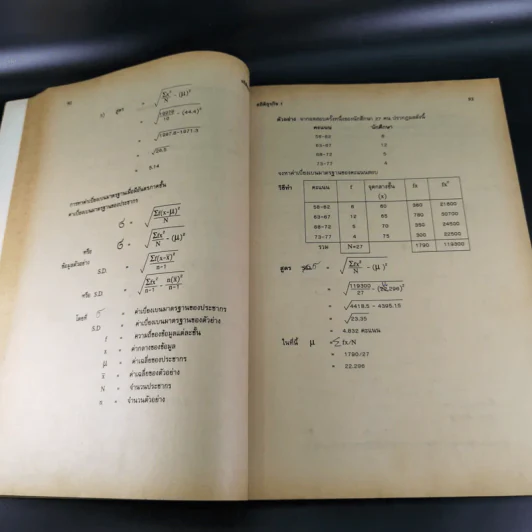 สูตร = √(Σfx²/N - (μ)²)
= √(19378/10 - (44.4)²)
= √
=
= 5.14
การหาค่าเบี่ยงเบนมาตรฐานเมื่อมีอันตรภาคชั้น
ค่าเบี่ยงเบนมาตรฐานของประชากร
σ = √(Σf(x-μ)²/N)
หรือ σ = √(Σfx²/N - (μ)²)
ข้อมูลตัวอย่าง
S.D. = √(Σf(x-x̄)²/n-1)
หรือ S.D = √(Σfx²/n-1 - n(x̄)²/n-1)
โดยที่ σ = ค่าเบี่ยงเบนมาตรฐานของประชากร
S.D = ค่าเบี่ยงเบนมาตรฐานของตัวอย่าง
f = ความถี่ของข้อมูลแต่ละชั้น
x = ค่ากลางของข้อมูล
μ = ค่าเฉลี่ยของประชากร
x̄ = ค่าเฉลี่ยของตัวอย่าง
N = จำนวนประชากร
n = จำนวนตัวอย่าง
สถิติธุรกิจ 1
ตัวอย่าง จากผลสอบครั้งหนึ่งของนักศึกษา 27 คน ปรากฏผลดังนี้
คะแนน นักศึกษา
58-62 6
63-67 12
68-72 5
73-77 4
จงหาค่าเบี่ยงเบนมาตรฐานของคะแนนสอบ
วิธีทำ คะแนน f จุดกลางชั้น (x) fx fx²
58-62 6 60 360 21600
63-67 12 65 780 50700
68-72 5 70 350 24500
73-77 4 75 300 22500
รวม N=27 1790 119300
สูตร σ = √(Σfx²/N - (μ)²)
= √(119300/27 - ( .296)²)
= √(4418.5 - 4395.15)
= √23.35
= 4.832 คะแนน
ในที่นี้ μ = Σfx/N
= 1790/27
= 22.296